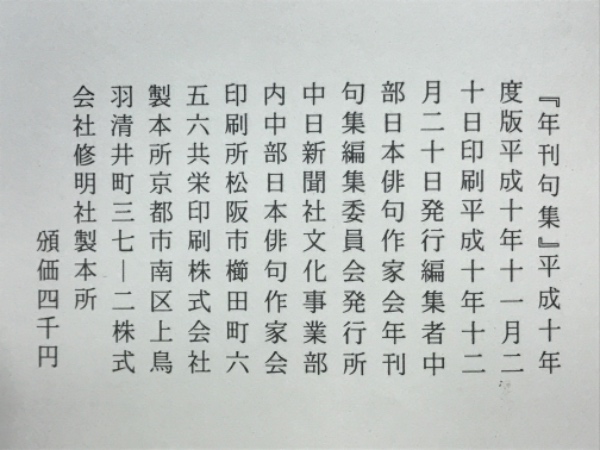 『年刊句集』平成十年
度版平成十年十一月二
十日印刷平成十年十二
月二十日発行編集者中
部日本俳句作家会年刊
句集編集委員会発行所
中日新聞社文化事業部
内中部日本俳句作家会
印刷所松阪市櫛田町六
五六共栄印刷株式会社
製本所京都市南区上鳥
羽清井町三七―二株式
会社修明社製本所
頒価四千円